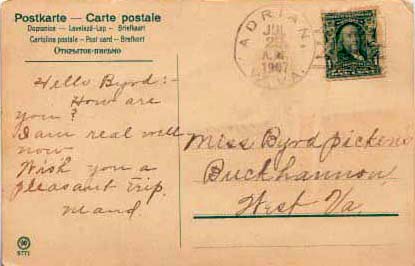 Postkarte — Carte postale
Dopisnice – Levelező-Lap – Briefkaart
Cartolina postale – Post card – Brefkort
Открытое письмо
ADRIAN
JUL
A.M.
1907
W.VA.
1
Hello Byrd:-
How are
you?
I am real well
now
Wish you a
pleasant trip.
Maud.
Miss Byrd Pickens
Buckhannon,
West Va.